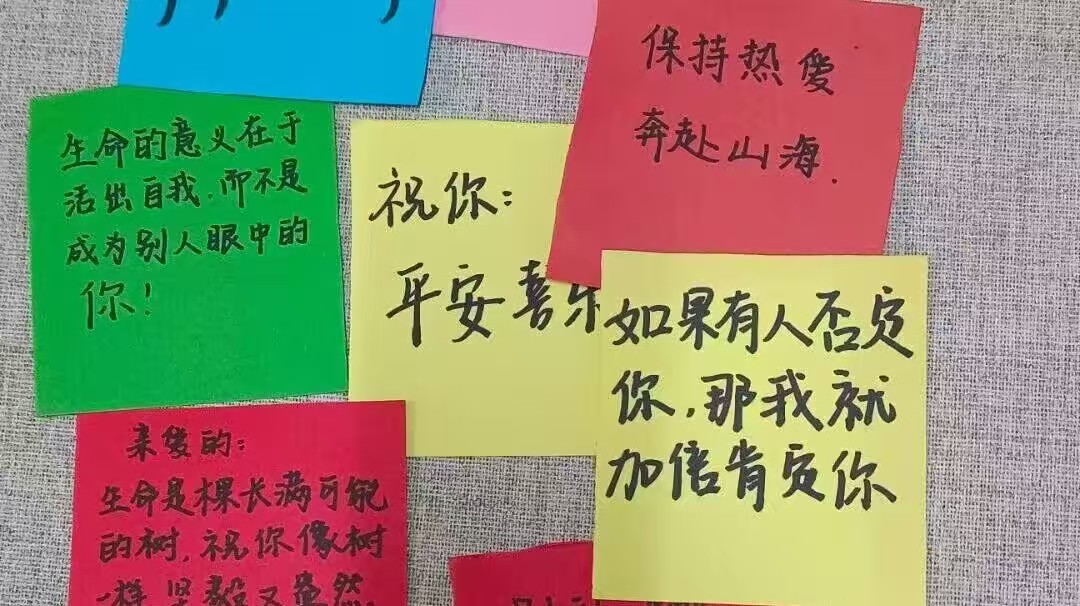 生命的意义在于
活出自我.而不是
成为别人眼中的
你!
祝你:
平安喜乐
保持热爱
奔赴山海.
如果有人否定
你,那我就
加倍肯定你
亲爱的:
生命是棵长满可能
的树,祝你像树
一样坚毅又盎然